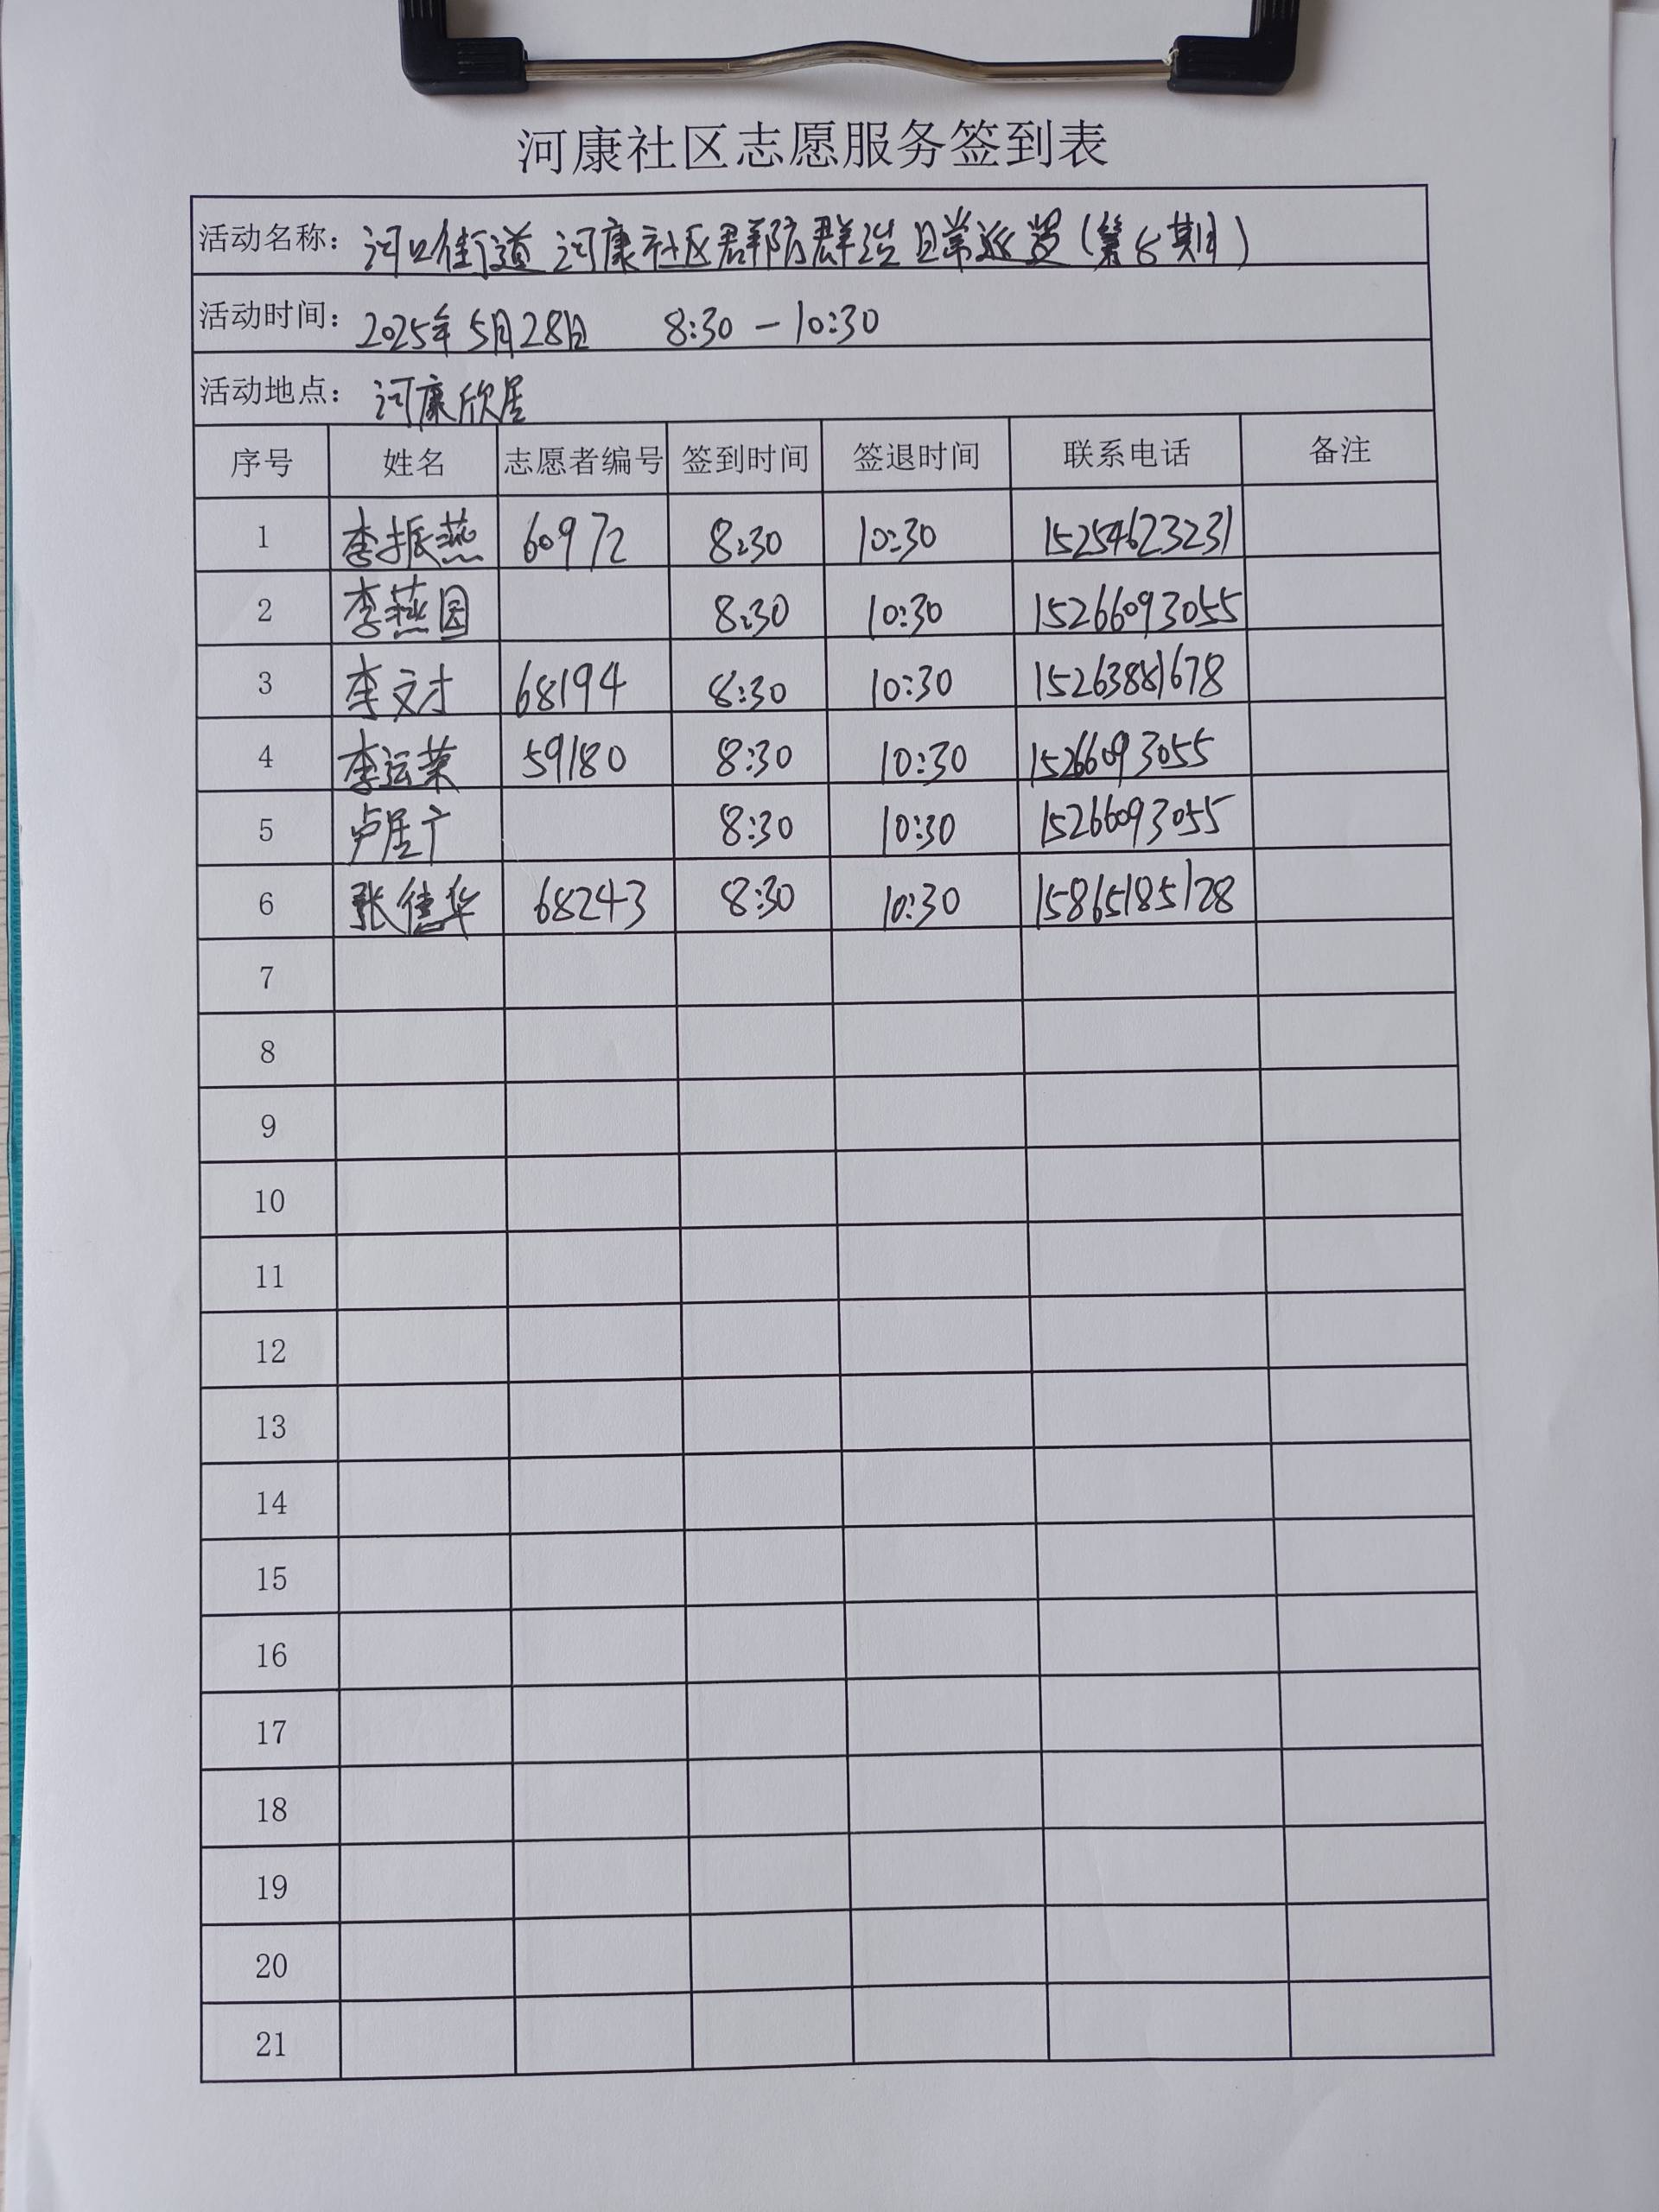 河康社区志愿服务签到表
活动名称: 河口街道河康社区群防群治日常巡逻(第5期)
活动时间: 2025年5月28日 8:30 — 10:30
活动地点: 河康欣居
序号 姓名 志愿者编号 签到时间 签退时间 联系电话 备注
1 李振燕 60972 8:30 10:30 15254623231
2 李燕园 8:30 10:30 15266093055
3 李文才 68194 8:30 10:30 15263881678
4 李运荣 59180 8:30 10:30 15266093055
5 卢居广 8:30 10:30 15266093055
6 张佳华 68243 8:30 10:30 15865185128
7
8
9
10
11
12
13
14
15
16
17
18
19
20
21